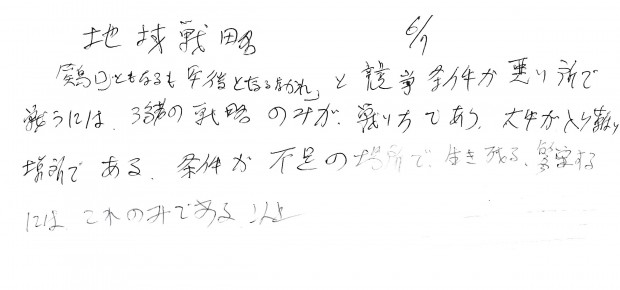 地域戦略 6/7
「鶏口ともなるも牛後となる勿れ」と競争条件が悪い所で
戦うには、弱者の戦略のみが、戦い方であり、大手が入り難い
場所である、条件が不足の場所で、生き残る、繁栄する
には これのみである